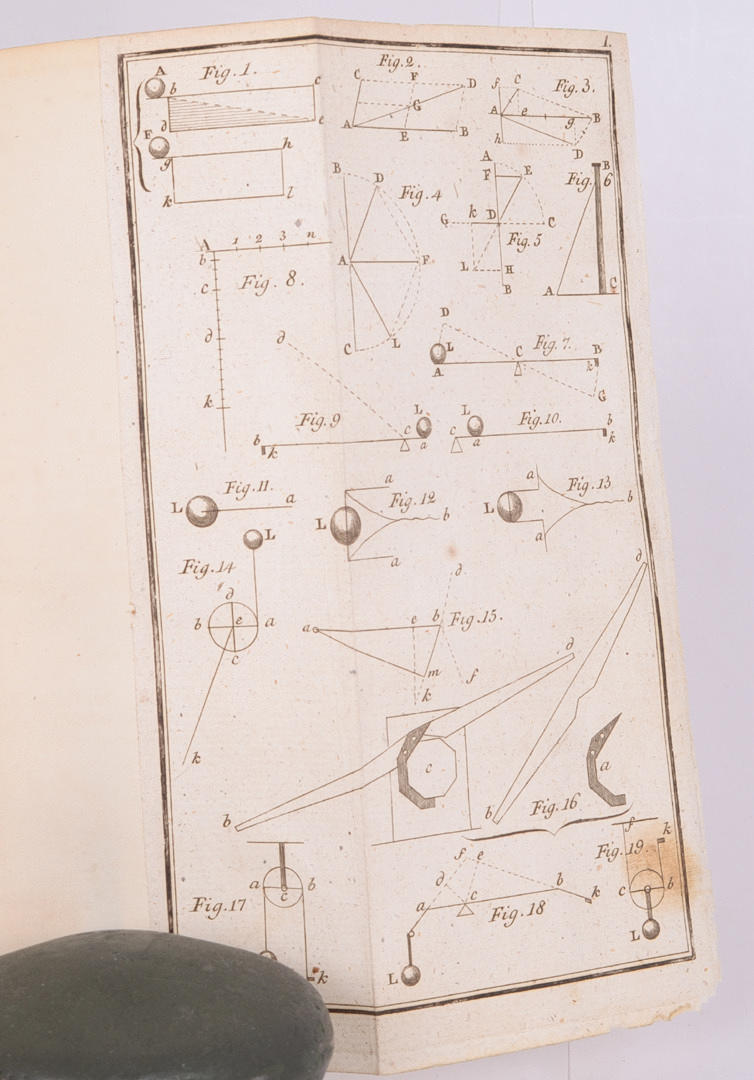 1.
A Fig. 1. c
b
d e
F
g h
k l
Fig. 2.
C F D
G
A E B
Fig. 3.
f C
A e g B
h D
Fig. 4
B D
A F
C L
A
F E
G k D C
Fig. 5
L H
B
Fig. 6
B
A C
A 1 2 3 n
b
c
Fig. 8.
d
k
D
L C Fig. 7. B
A k
G
d
Fig. 9
b c L
k a
L Fig. 10.
c a b
k
Fig. 11.
L a
a Fig. 12
L b
a
a Fig. 13
L b
a
L
Fig. 14
d
b e a
c
k
d
a e b Fig. 15.
m
k f
d
d
c a
b b
Fig. 16
Fig. 17
a b
c
k
f e
d b
a c k
Fig. 18
L
f k
Fig. 19.
c b
L